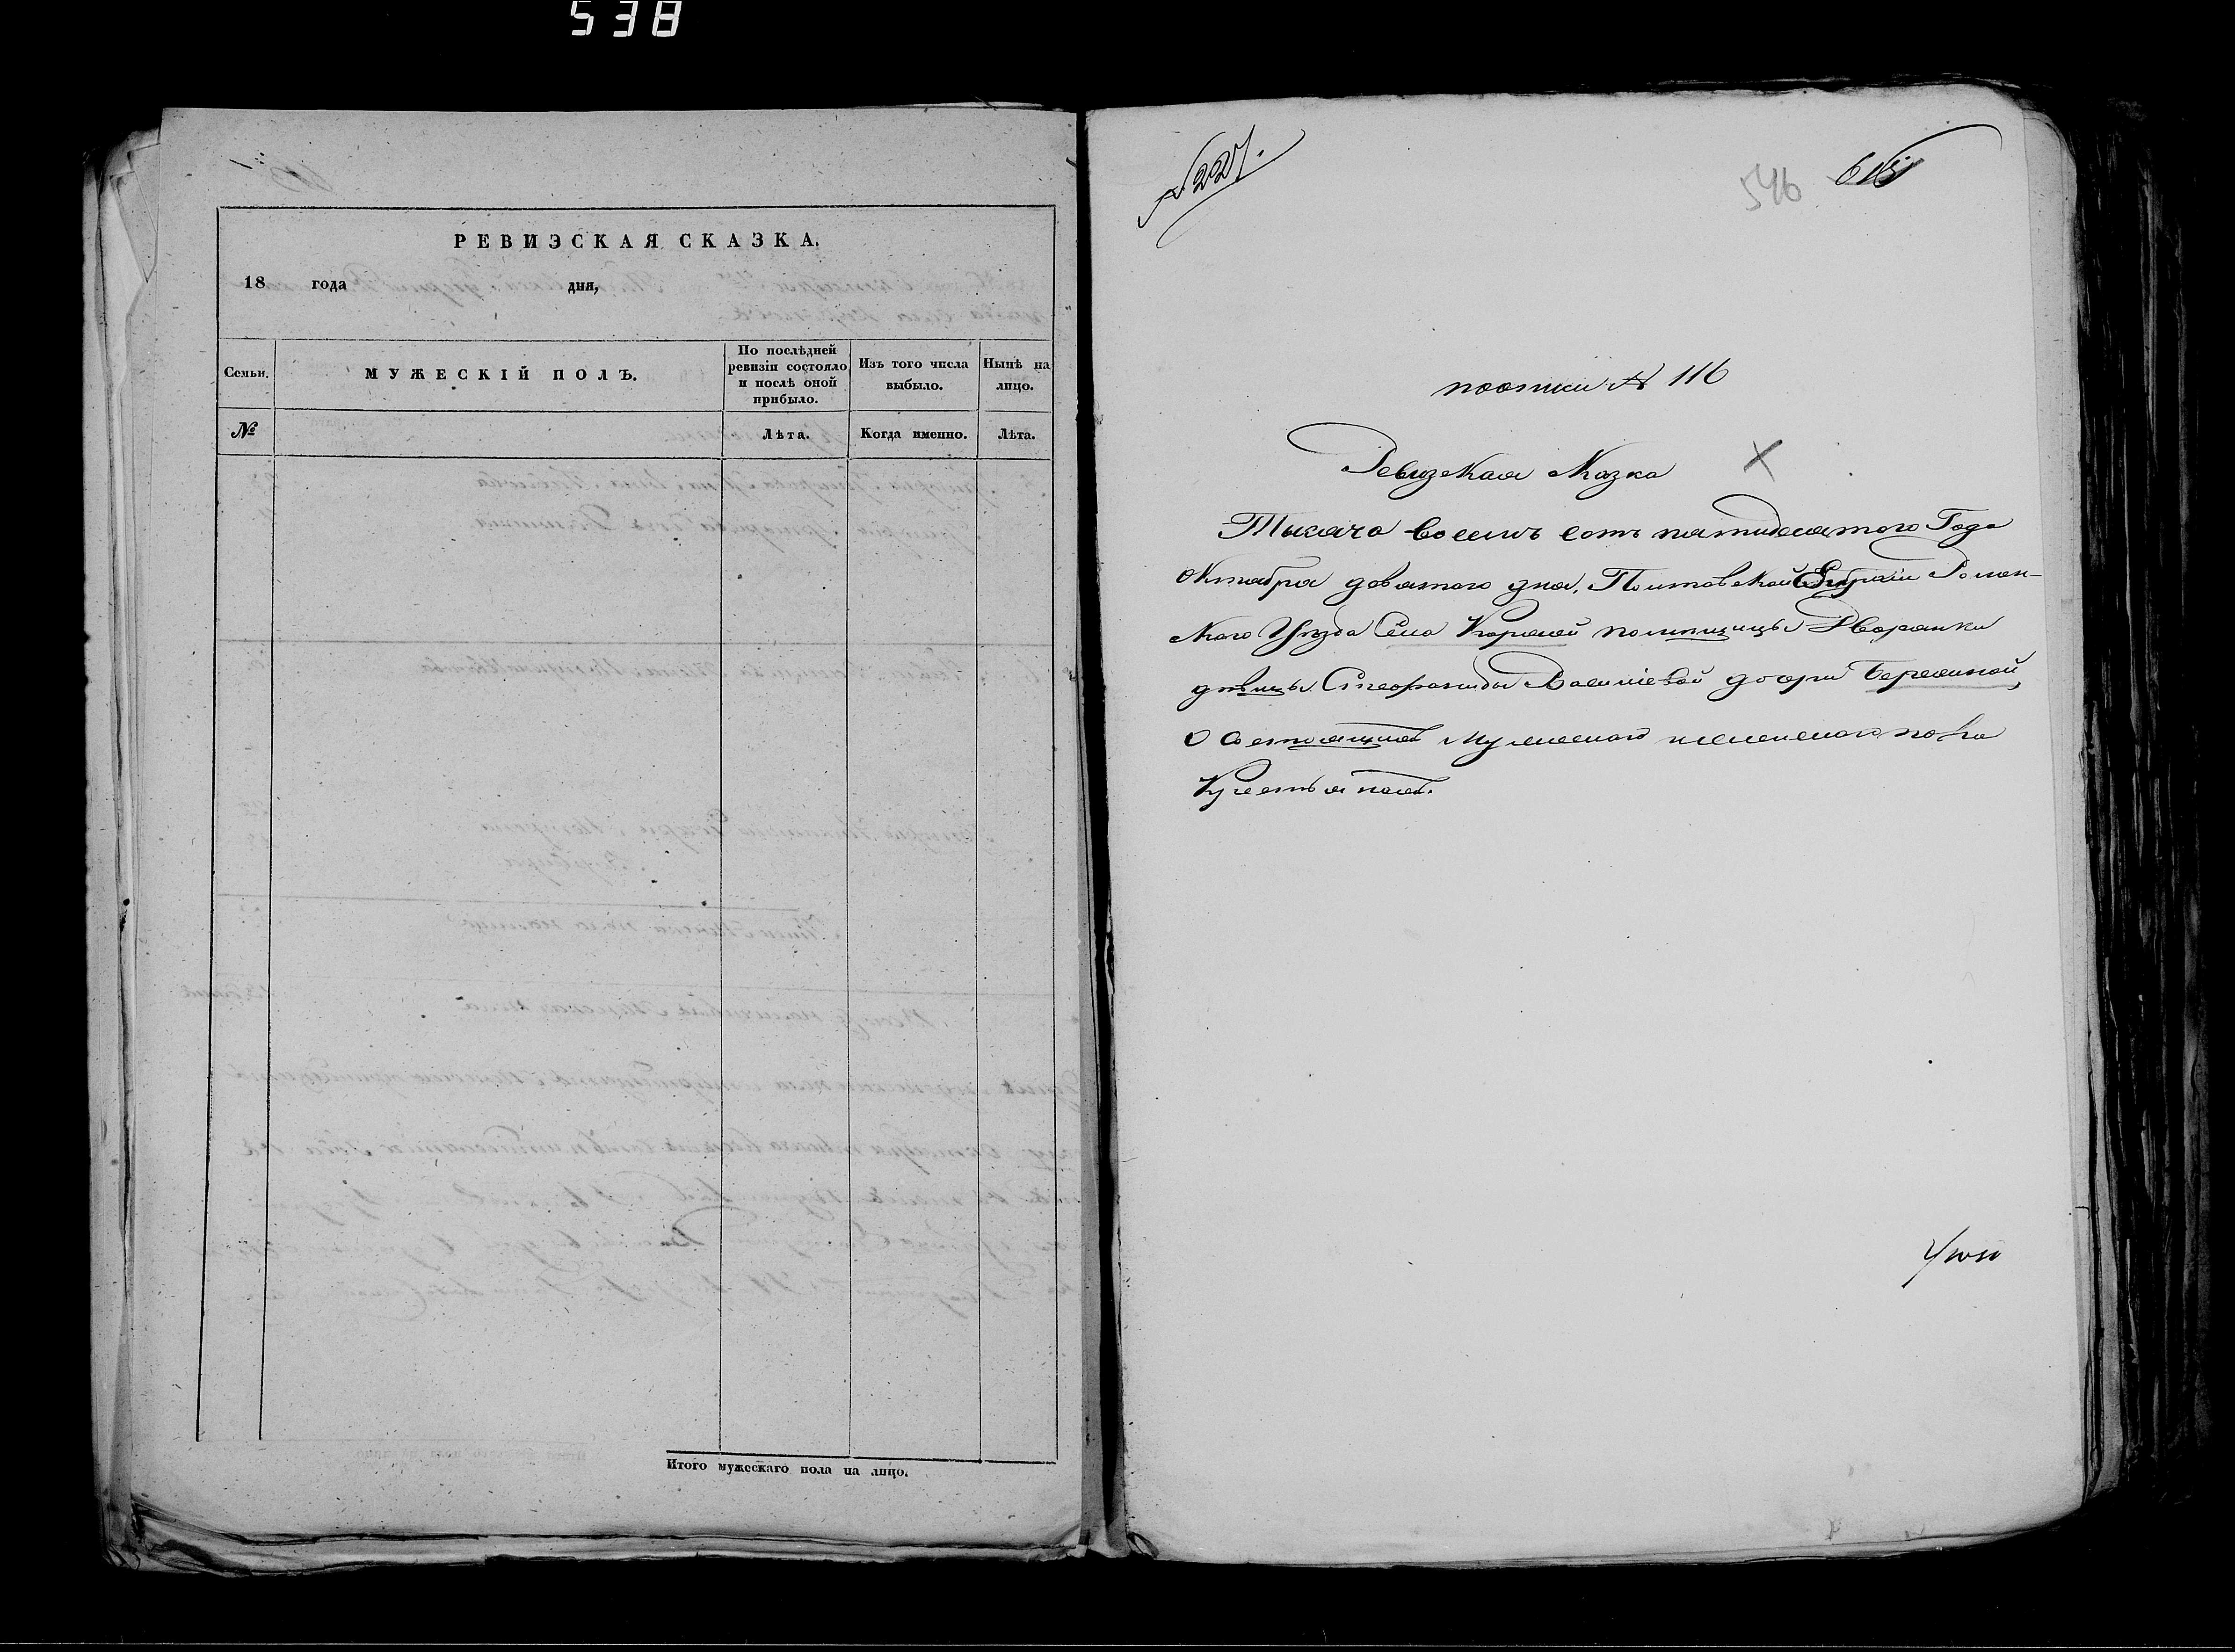 538
РЕВИЗСКАЯ СКАЗКА.
18 года дня,
Семьи.
МУЖЕСКІЙ ПОЛЪ.
По послѣдней ревизіи состояло и послѣ оной прибыло.
Изъ того числа выбыло.
Нынѣ на лицо.
№
Лѣта.
Когда именно.
Лѣта.
Итого мужескаго пола на лицо.
№ 227.
546
по описи № 116
Ревизская Сказка
Тысяча восемь сотъ пятидесятого Года
Октября девятого дня, Полтавской Губерніи Ромен-
ского Уѣзда Села Коровай помѣщицы Дворянки
дѣвицы Василіевой дочери
О состоящихъ мужескаго и женскаго пола
Крестьянахъ.